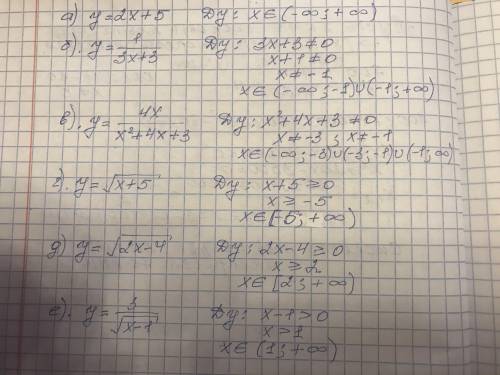 а) y=2x+5 Dy: x∈(-∞;+∞)
б). y=1/(3x+3) Dy: 3x+3≠0
x+1≠0
x≠-1
x∈(-∞;-1)∪(-1;+∞)
в). y=4x/(x²+4x+3) Dy: x²+4x+3≠0
x≠-3; x≠-1
x∈(-∞;-3)∪(-3;-1)∪(-1;∞)
г). y=√(x+5) Dy: x+5≥0
x≥-5
x∈[-5;+∞)
д) y=√(2x-4) Dy: 2x-4≥0
x≥2
x∈[2;+∞)
е). y=3/√(x-1) Dy: x-1>0
x>1
x∈(1;+∞)